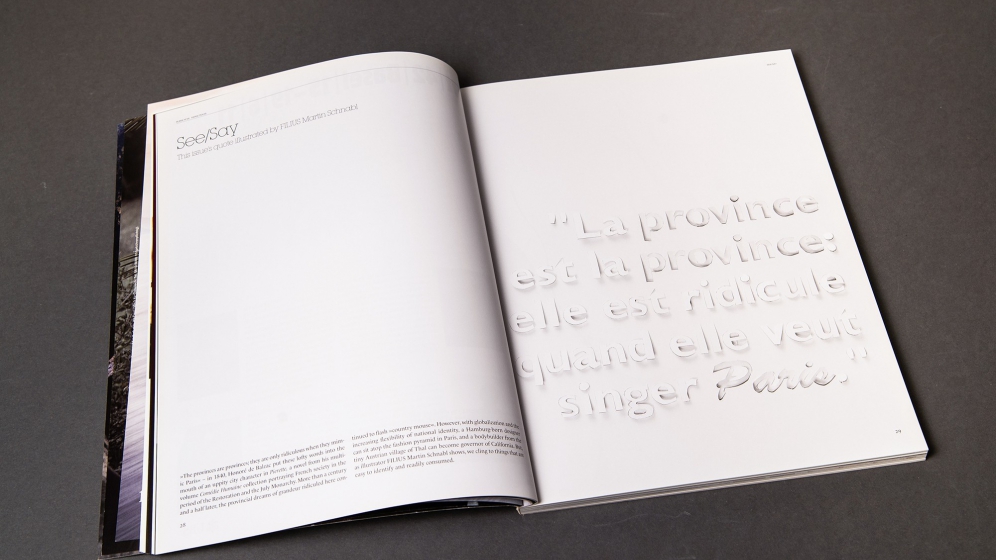 See/Say
This issue's quote illustrated by FILIUS Martin Schnabl
»The provinces are provinces; they are only ridiculous when they mim-
ic Paris« – in 1840, Honoré de Balzac put these lofty words into the
mouth of an uppity city character in Pierrette, a novel from his multi-
volume Comédie Humaine collection portraying French society in the
period of the Restoration and the July Monarchy. More than a century
and a half later, the provincial dream of grandeur ridiculed here con-
tinued to flash »country mouse«. However, with globalization and the
increasing flexibility of national identity, a Hamburg-born designer
can sit atop the fashion pyramid in Paris, and a bodybuilder from the
tiny Austrian village of Thal can become governor of California. But
as illustrator FILIUS Martin Schnabl shows, we cling to things that are
easy to identify and readily consumed.
28
"La province
est la province;
elle est ridicule
quand elle veut
singer Paris."
29